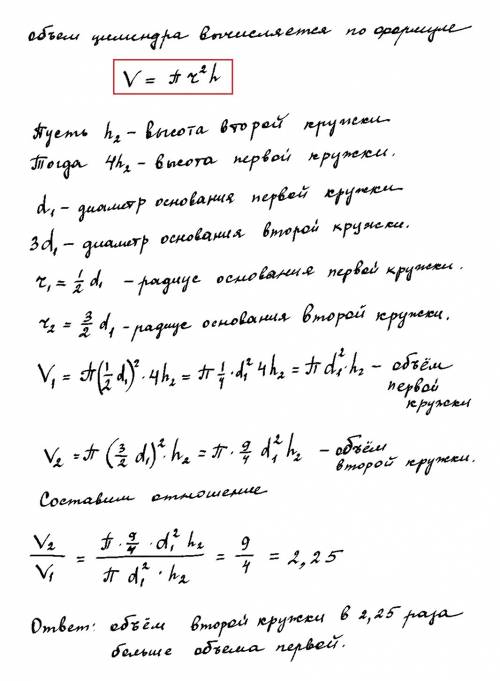 объем цилиндра вычисляется по формуле
V = π r² h
Пусть h₂ – высота второй кружки
Тогда 4h₂ – высота первой кружки.
d₁ – диаметр основания первой кружки
3d₁ – диаметр основания второй кружки.
r₁ = 1/2 d₁ – радиус основания первой кружки.
r₂ = 3/2 d₁ – радиус основания второй кружки.
V₁ = π(1/2 d₁)² · 4h₂ = π 1/4 · d₁² 4h₂ = π d₁² · h₂ – объём первой кружки
V₂ = π (3/2 d₁)² · h₂ = π · 9/4 d₁² h₂ – объём второй кружки.
Составим отношение
V₂/V₁ = (π · 9/4 · d₁² h₂)/(π d₁² · h₂) = 9/4 = 2,25
Ответ: объём второй кружки в 2,25 раза
больше объема первой.